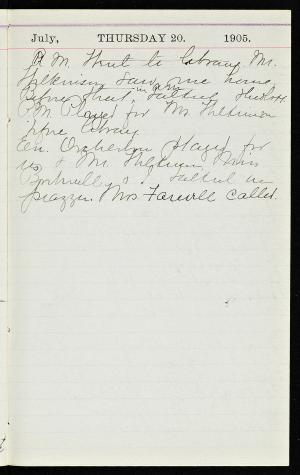 July, THURSDAY 20. 1905.
A M. Went to Library Mr.
Wilkinson saw me home
Before that, talking
P.M. Played for Mr Wilkinson
Library
Eve. Orchestra played for
us & Mr. Wilkinson, Miss
& I talked on
piazza. Mrs Farwell called.